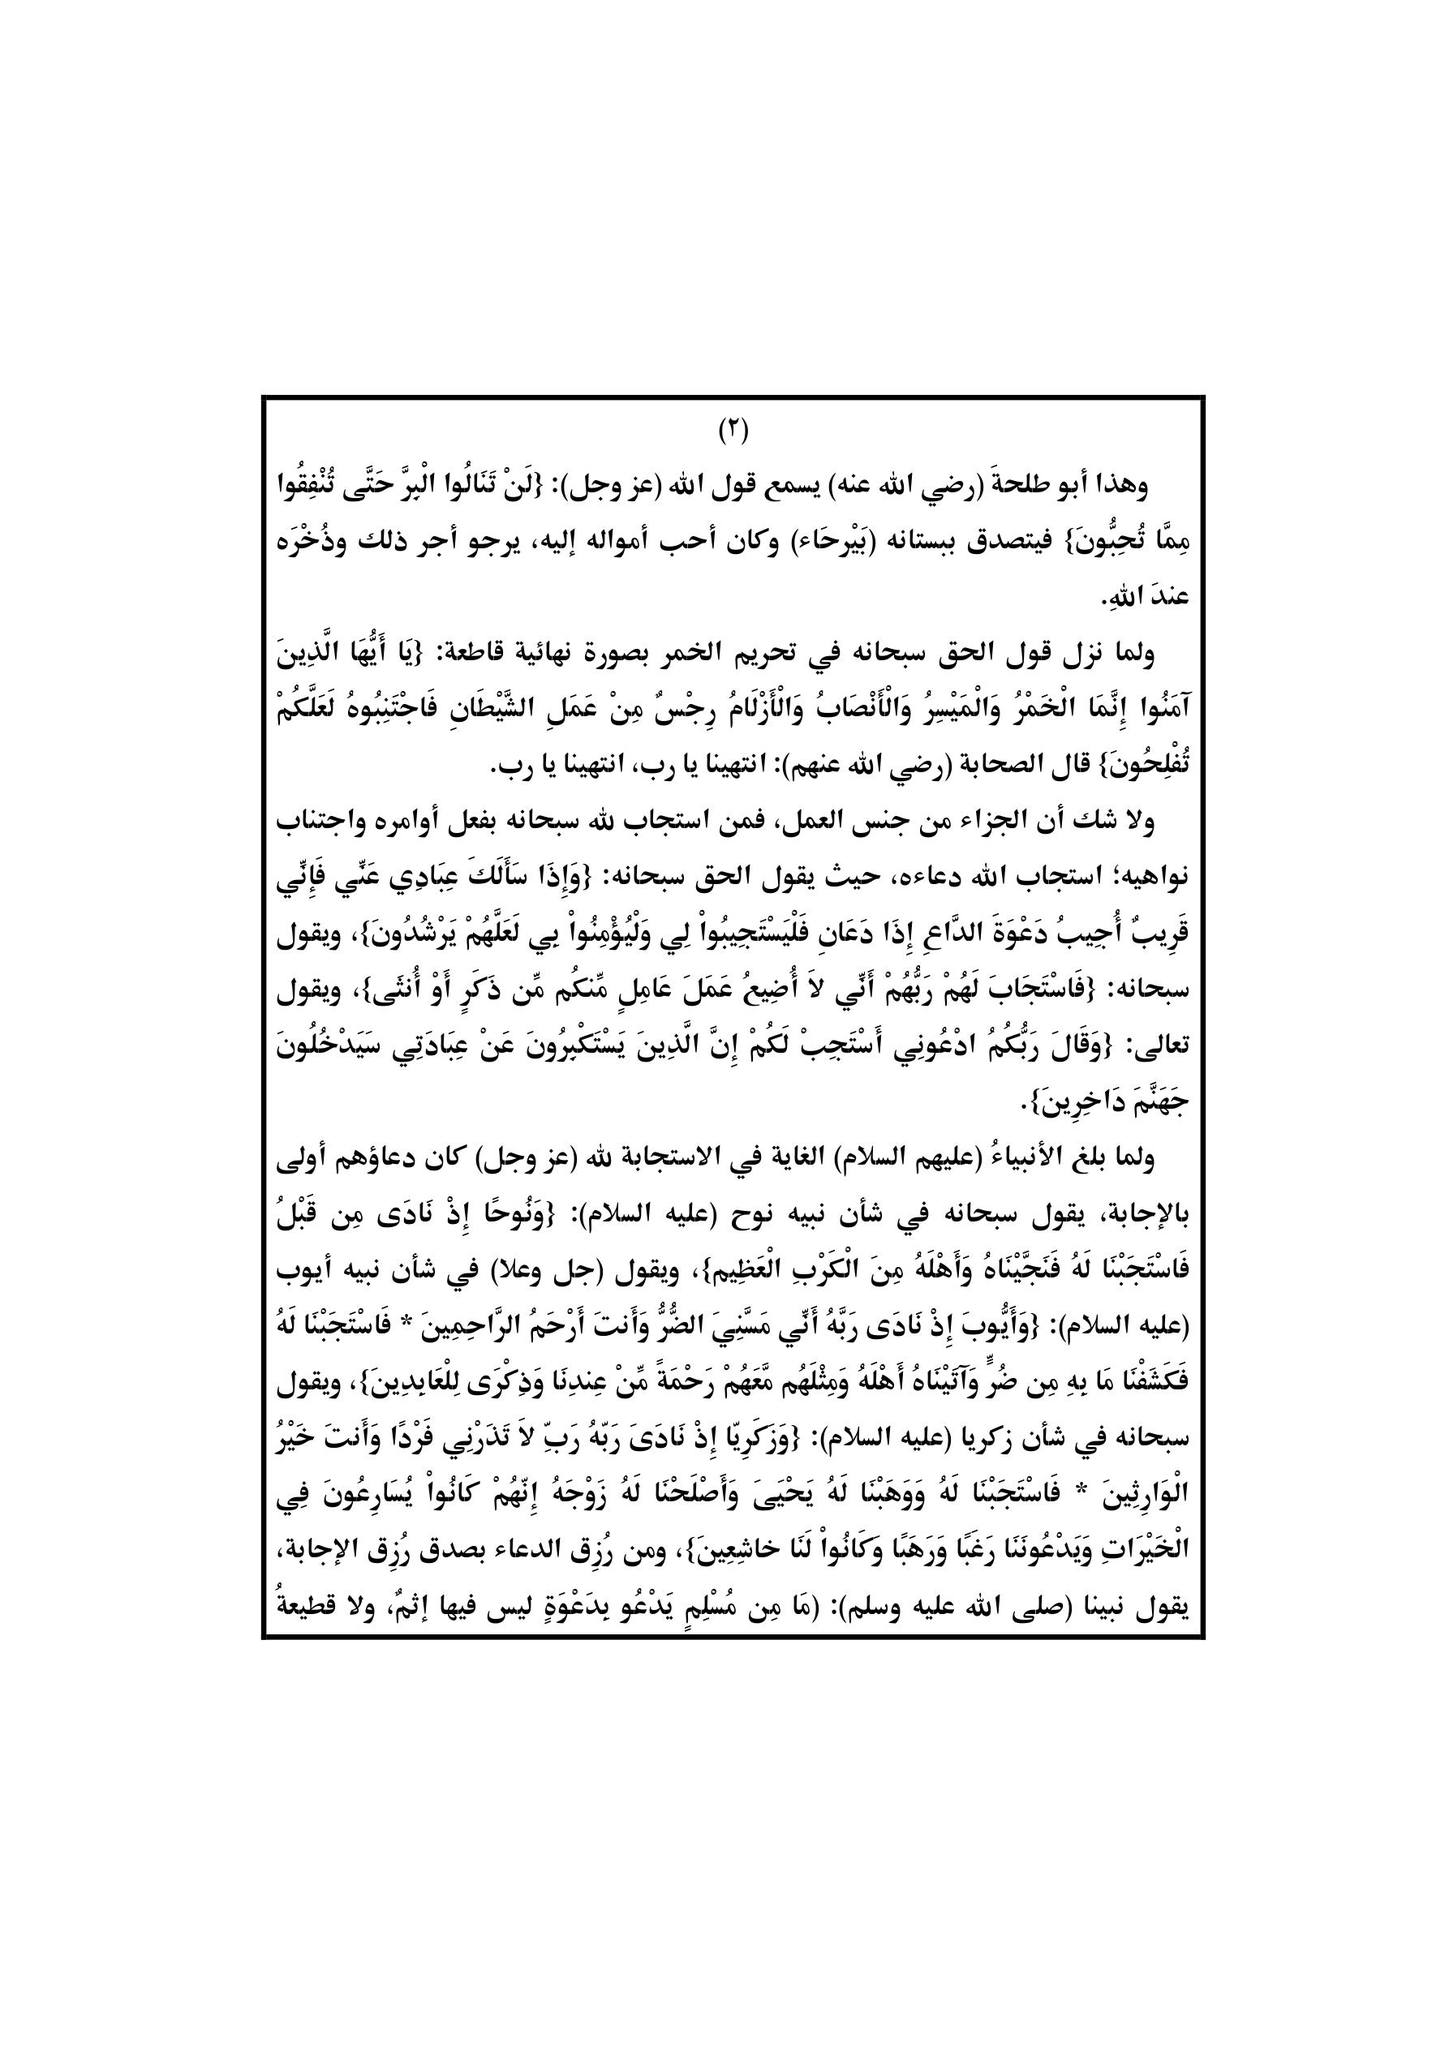 (٢)
وهذا أبو طلحةَ (رضي الله عنه) يسمع قول الله (عز وجل): {لَنْ تَنَالُوا الْبِرَّ حَتَّى تُنْفِقُوا
مِمَّا تُحِبُّونَ} فيتصدق ببستانه (بَيْرحَاء) وكان أحب أمواله إليه، يرجو أجر ذلك وذُخْرَه
عندَ اللهِ.
ولما نزل قول الحق سبحانه في تحريم الخمر بصورة نهائية قاطعة: {يَا أَيُّهَا الَّذِينَ
آمَنُوا إِنَّمَا الْخَمْرُ وَالْمَيْسِرُ وَالْأَنْصَابُ وَالْأَزْلَامُ رِجْسٌ مِنْ عَمَلِ الشَّيْطَانِ فَاجْتَنِبُوهُ لَعَلَّكُمْ
تُفْلِحُونَ} قال الصحابة (رضي الله عنهم): انتهينا يا رب، انتهينا يا رب.
ولا شك أن الجزاء من جنس العمل، فمن استجاب لله سبحانه بفعل أوامره واجتناب
نواهيه؛ استجاب الله دعاءه، حيث يقول الحق سبحانه: {وَإِذَا سَأَلَكَ عِبَادِي عَنِّي فَإِنِّي
قَرِيبٌ أُجِيبُ دَعْوَةَ الدَّاعِ إِذَا دَعَانِ فَلْيَسْتَجِيبُواْ لِي وَلْيُؤْمِنُواْ بِي لَعَلَّهُمْ يَرْشُدُونَ}، ويقول
سبحانه: {فَاسْتَجَابَ لَهُمْ رَبُّهُمْ أَنِّي لاَ أُضِيعُ عَمَلَ عَامِلٍ مِّنكُم مِّن ذَكَرٍ أَوْ أُنثَى}، ويقول
تعالى: {وَقَالَ رَبُّكُمُ ادْعُونِي أَسْتَجِبْ لَكُمْ إِنَّ الَّذِينَ يَسْتَكْبِرُونَ عَنْ عِبَادَتِي سَيَدْخُلُونَ
جَهَنَّمَ دَاخِرِينَ}.
ولما بلغ الأنبياءُ (عليهم السلام) الغاية في الاستجابة لله (عز وجل) كان دعاؤهم أولى
بالإجابة، يقول سبحانه في شأن نبيه نوح (عليه السلام): {وَنُوحًا إِذْ نَادَى مِن قَبْلُ
فَاسْتَجَبْنَا لَهُ فَنَجَّيْنَاهُ وَأَهْلَهُ مِنَ الْكَرْبِ الْعَظِيمِ}، ويقول (جل وعلا) في شأن نبيه أيوب
(عليه السلام): {وَأَيُّوبَ إِذْ نَادَى رَبَّهُ أَنِّي مَسَّنِيَ الضُّرُّ وَأَنتَ أَرْحَمُ الرَّاحِمِينَ * فَاسْتَجَبْنَا لَهُ
فَكَشَفْنَا مَا بِهِ مِن ضُرٍّ وَآتَيْنَاهُ أَهْلَهُ وَمِثْلَهُم مَّعَهُمْ رَحْمَةً مِّنْ عِندِنَا وَذِكْرَى لِلْعَابِدِينَ}، ويقول
سبحانه في شأن زكريا (عليه السلام): {وَزَكَرِيّا إِذْ نَادَىَ رَبّهُ رَبِّ لاَ تَذَرْنِي فَرْدًا وَأَنتَ خَيْرُ
الْوَارِثِينَ * فَاسْتَجَبْنَا لَهُ وَوَهَبْنَا لَهُ يَحْيَىَ وَأَصْلَحْنَا لَهُ زَوْجَهُ إِنّهُمْ كَانُواْ يُسَارِعُونَ فِي
الْخَيْرَاتِ وَيَدْعُونَنَا رَغَبًا وَرَهَبًا وَكَانُواْ لَنَا خاشِعِينَ}، ومن رُزِق الدعاء بصدق رُزِق الإجابة،
يقول نبينا (صلى الله عليه وسلم): (مَا مِن مُسْلِمٍ يَدْعُو بِدَعْوَةٍ ليس فيها إثمٌ، ولا قطيعةُ